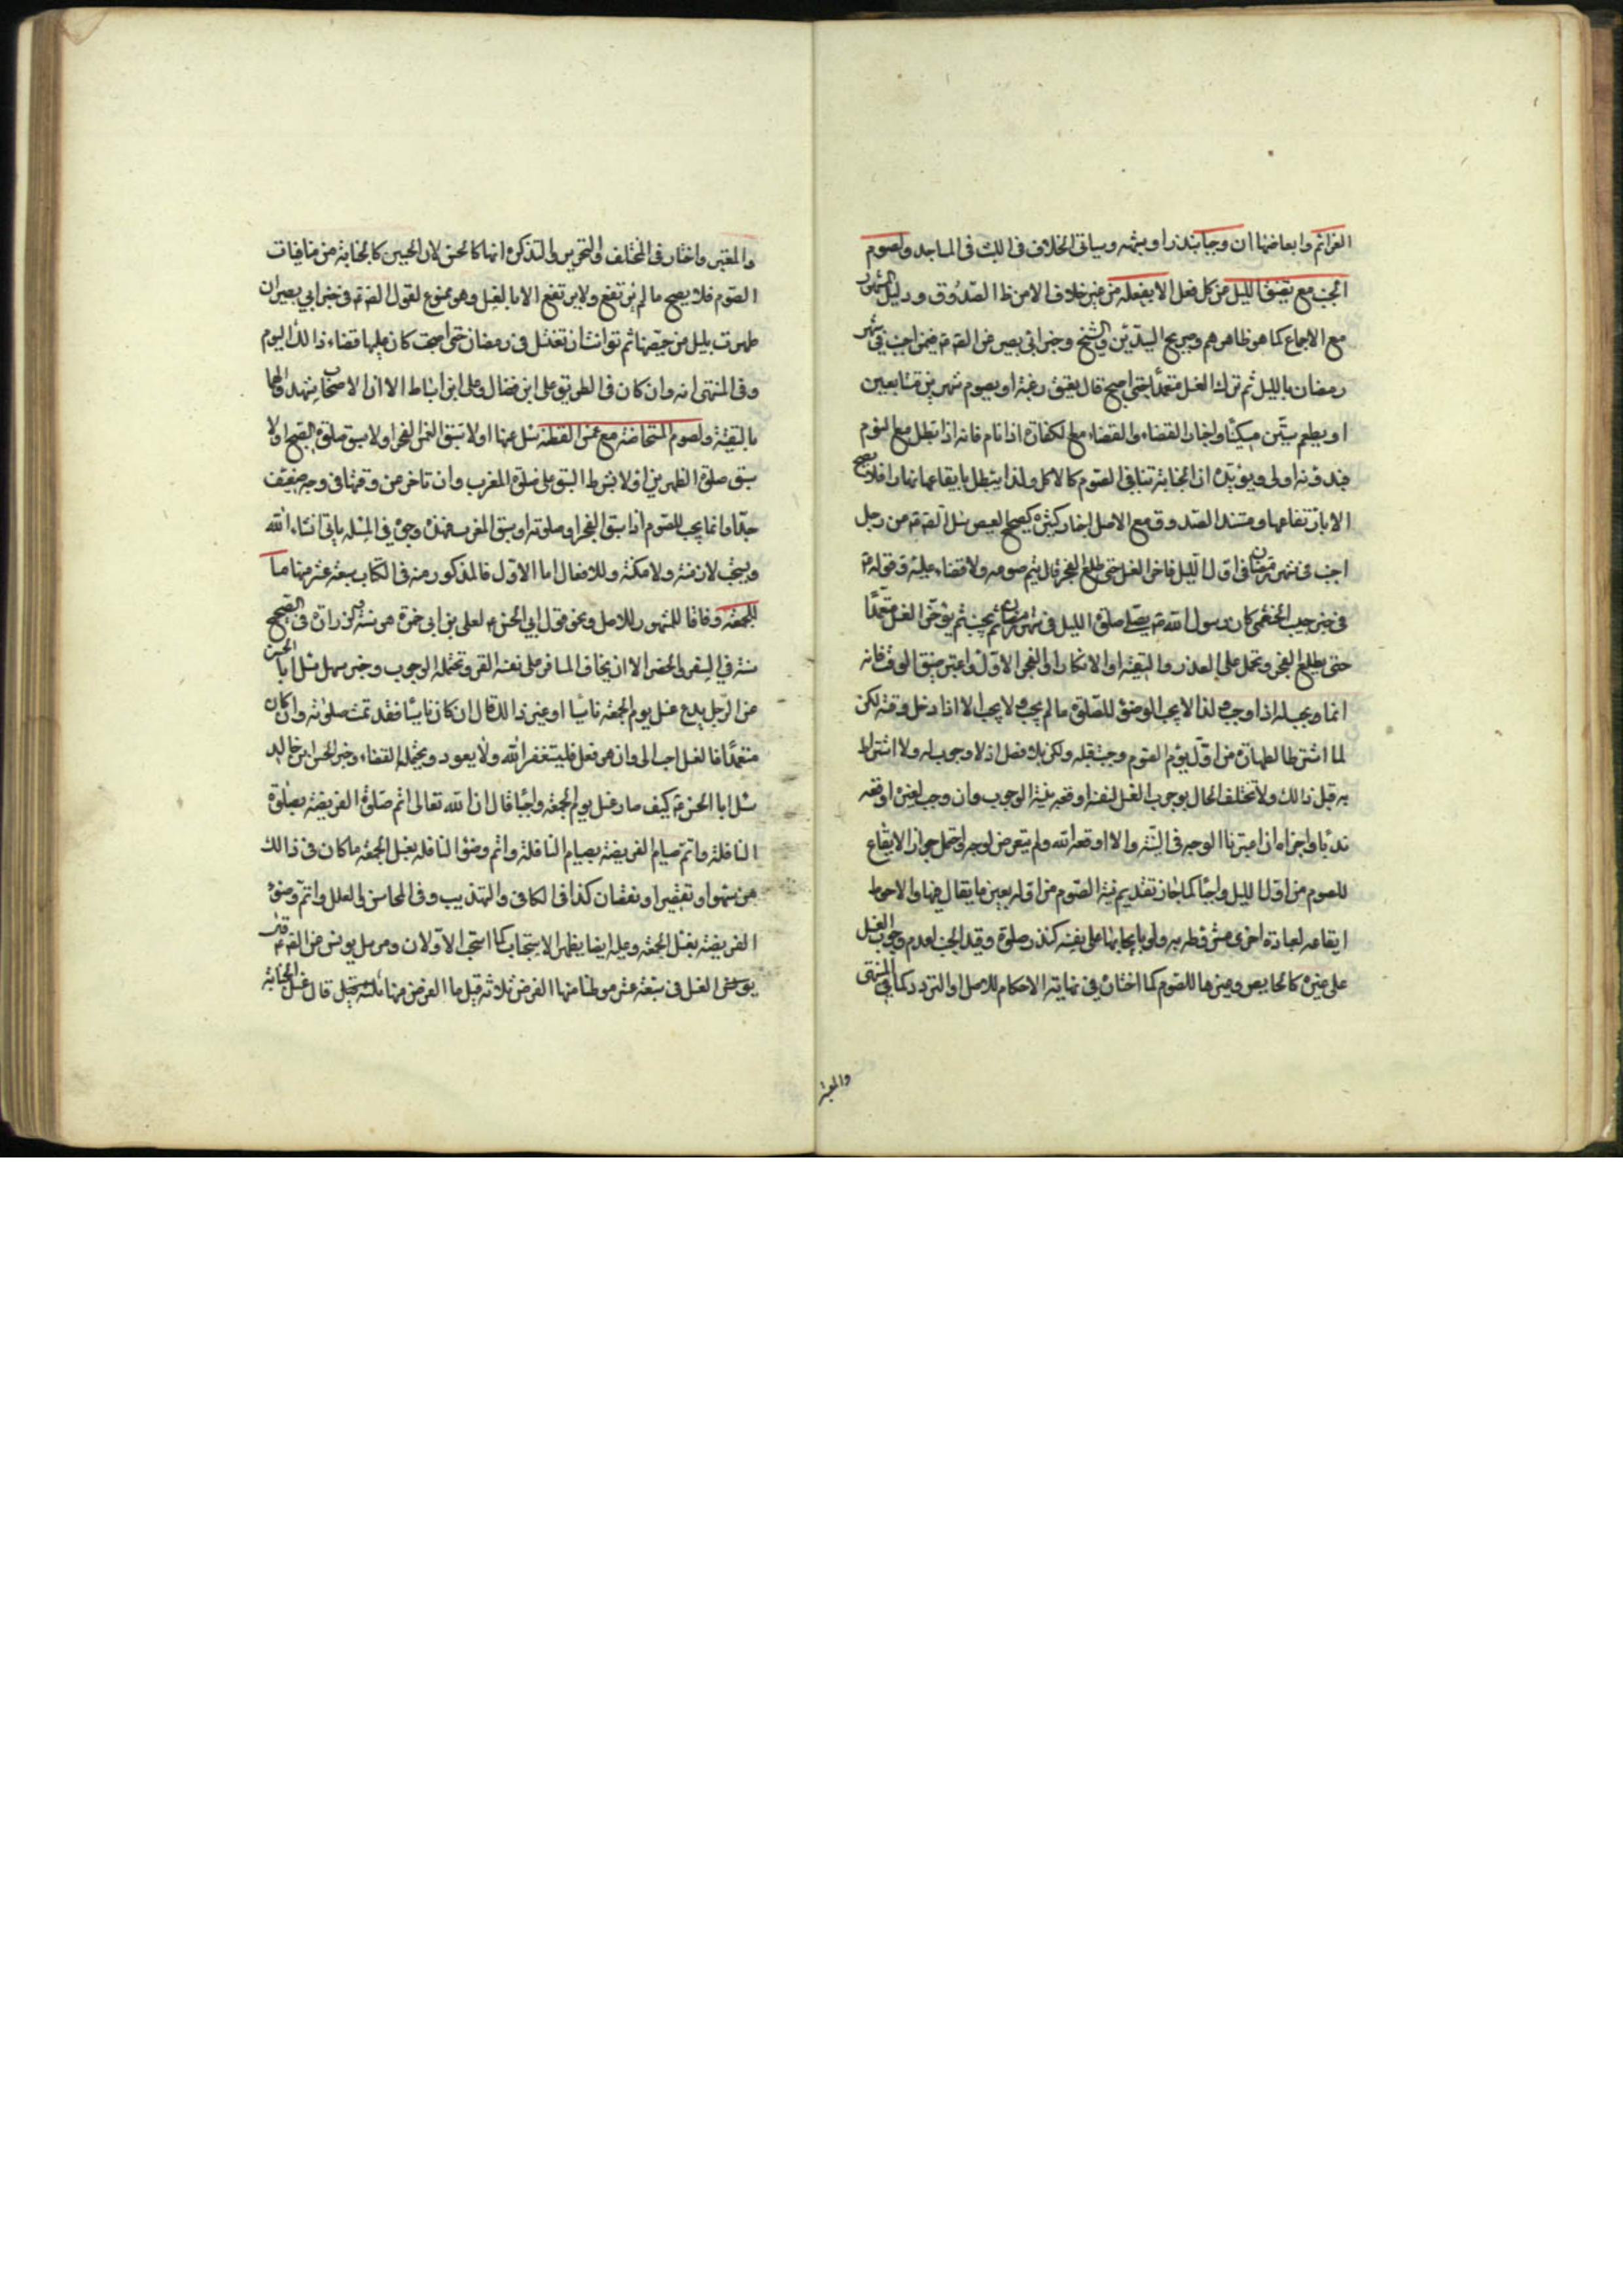 العزائم وابعاضها ان وجبا بنذر او شبهه وسياتي الخلاف في اللبث في المساجد ولصوم
الجنب مع تضيق الليل من كل فعل الا لفعله من غير خلاف الا من ظ الصدوق ودليل المشهور
مع الاجماع كما هو ظاهرهم وصريح السيدين والشيخ وخبر ابي بصير عن الصم فيمن اجنب في شهر
رمضان بالليل ثم ترك الغسل متعمدا حتى اصبح قال يعتق رقبة او يصوم شهرين متتابعين
او يطعم ستين مسكينا واخبار القضاء والقضاء مع الكفارة اذا نام فانه اذا بطل مع النوم
فبدونه اولى ويؤيده ان الجنابة تنافي الصوم كالاكل ولذا يبطل بايقاعها نهارا فلا يصح
الا بارتفاعها ومستند الصدوق مع الاصل اخبار كثيرة كصحيح العيص سئل الصم من رجل
اجنب في شهر رمضان في اول الليل فاخر الغسل حتى طلع الفجر قال يتم صومه ولا قضاء عليه وقوله م
في خبر حبيب الخثعمي كان رسول الله ص يصلي صلوة الليل في شهر رمضان ثم يجنب ثم يؤخر الغسل متعمدا
حتى يطلع الفجر وتحمل على العذر والتقية او الانكار او الفجر الاول واعتبر ضيق الوقت فانه
انما يجب له اذا وجب لذا لا يجب الوضوء للصلوة ما لم يجب ولا يجب الا اذا دخل وقته لكن
لما اشترط الطهارة من اول يوم الصوم وجبت قبله ولكن بلا فصل اذ لا وجوب له ولا اشتراط
به قبل ذلك ولا تختلف الحال بوجوب الغسل لنفسه او وقعه بنية الوجوب وان وجب لغيره اوقعه
ندبا واجزاه ان اعتبرنا الوجه في النية والا اوقعه لله ولم يتعرض لوجه واحتمل جواز الايقاع
للصوم من اول الليل واجبا كما جاز تقديم نية الصوم من اوله بعين ما يقال فيها والاحوط
ايقاعه لعبادة اخرى مشروطه به ولو بايجابها على نفسه كنذر صلوة وقيد الجنب لعدم وجوب الغسل
على غيره كالحايض وغيرها للصوم كما اختاره في نهاية الاحكام للاصل او التردد كما في المنتهى
والمعتبر
والمعتبر واختار في المختلف والتحرير والتذكرة انها كالجنب لان الحيض كالجنابة من منافيات
الصوم فلا يصح ما لم يرتفع ولا يرتفع الا بالغسل وهو ممنوع لقول الصم في خبر ابي بصير ان
طهرت بليل من حيضها ثم توانت ان تغتسل في رمضان حتى اصبحت كان عليها قضاء ذالك اليوم
وفي المنتهى انه وان كان في الطريق علي ابن فضال وعلي ابن اسباط الا ان الاصحاب شهدوا لهما
بالثقة ولصوم المستحاضة مع غمس القطنة سئل عنها اولا سبق الغمس الفجر اولا سبق صلوة الصبح اولا
سبق صلوة الظهرين اولا بشرط السبق على صلوة المغرب وان تاخر من وقتها في وجه ضعيف
جدا وانما يجب للصوم اذا سبق الفجر او صلوته او سبق المغرب فهذه وجوه في المسئله ياتي انشاء الله
ويستحب لازمنة ولامكنة وللافعال اما الاول فالمذكور منه في الكتاب سبعة عشر منها ما
للجمعة وفاقا للمشهور للاصل ونحو قول ابي الحسن م لعلي بن ابي حمزة هو سنة وخبر زرارة في الصحيح
سنة في السفر والحضر الا ان يخاف المسافر على نفسه القر وتحتمله الوجوب وخبر سهل سئل ابا الحسن
عن الرجل يدع غسل يوم الجمعة ناسيا او غير ذالك قال ان كان ناسيا فقد تمت صلوته وان كان
متعمدا فالغسل احب الى وان هو فعل فليستغفر الله ولا يعود ويحتمله القضاء وخبر الحسين بن خالد
سئل ابا الحسن م كيف صار غسل يوم الجمعة واجبا قال ان الله تعالى اتم صلوة الفريضة بصلوة
النافلة واتم صيام الفريضة بصيام النافلة واتم وضوء النافلة بغسل الجمعة ما كان في ذالك
من سهو او تقصير او نقصان كذا في الكافي والتهذيب وفي المحاسن والعلل واتم وضوء
الفريضة بغسل الجمعة وعليه ايضا يظهر الاستحباب كما استحب الاولان ومرسل يونس عن الصم
الغسل في سبعة عشر موطنا منها الفرض ثلاثة قيل ما الفرض منها قال غسل الجنابة